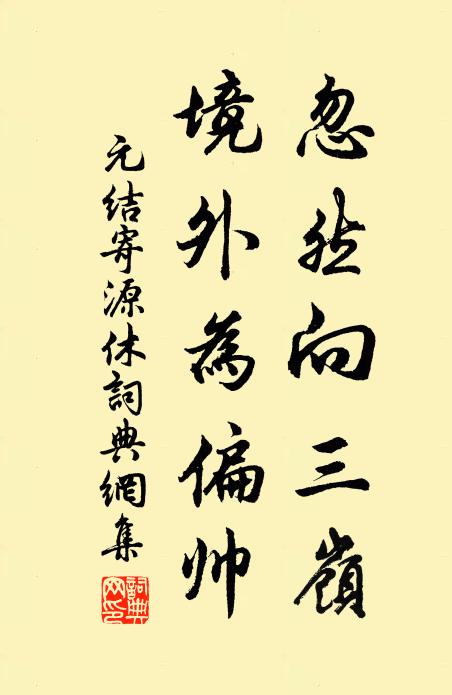 忽然向三嶺
境外為偏帅
元结寄源休詞典網集
詞典網印